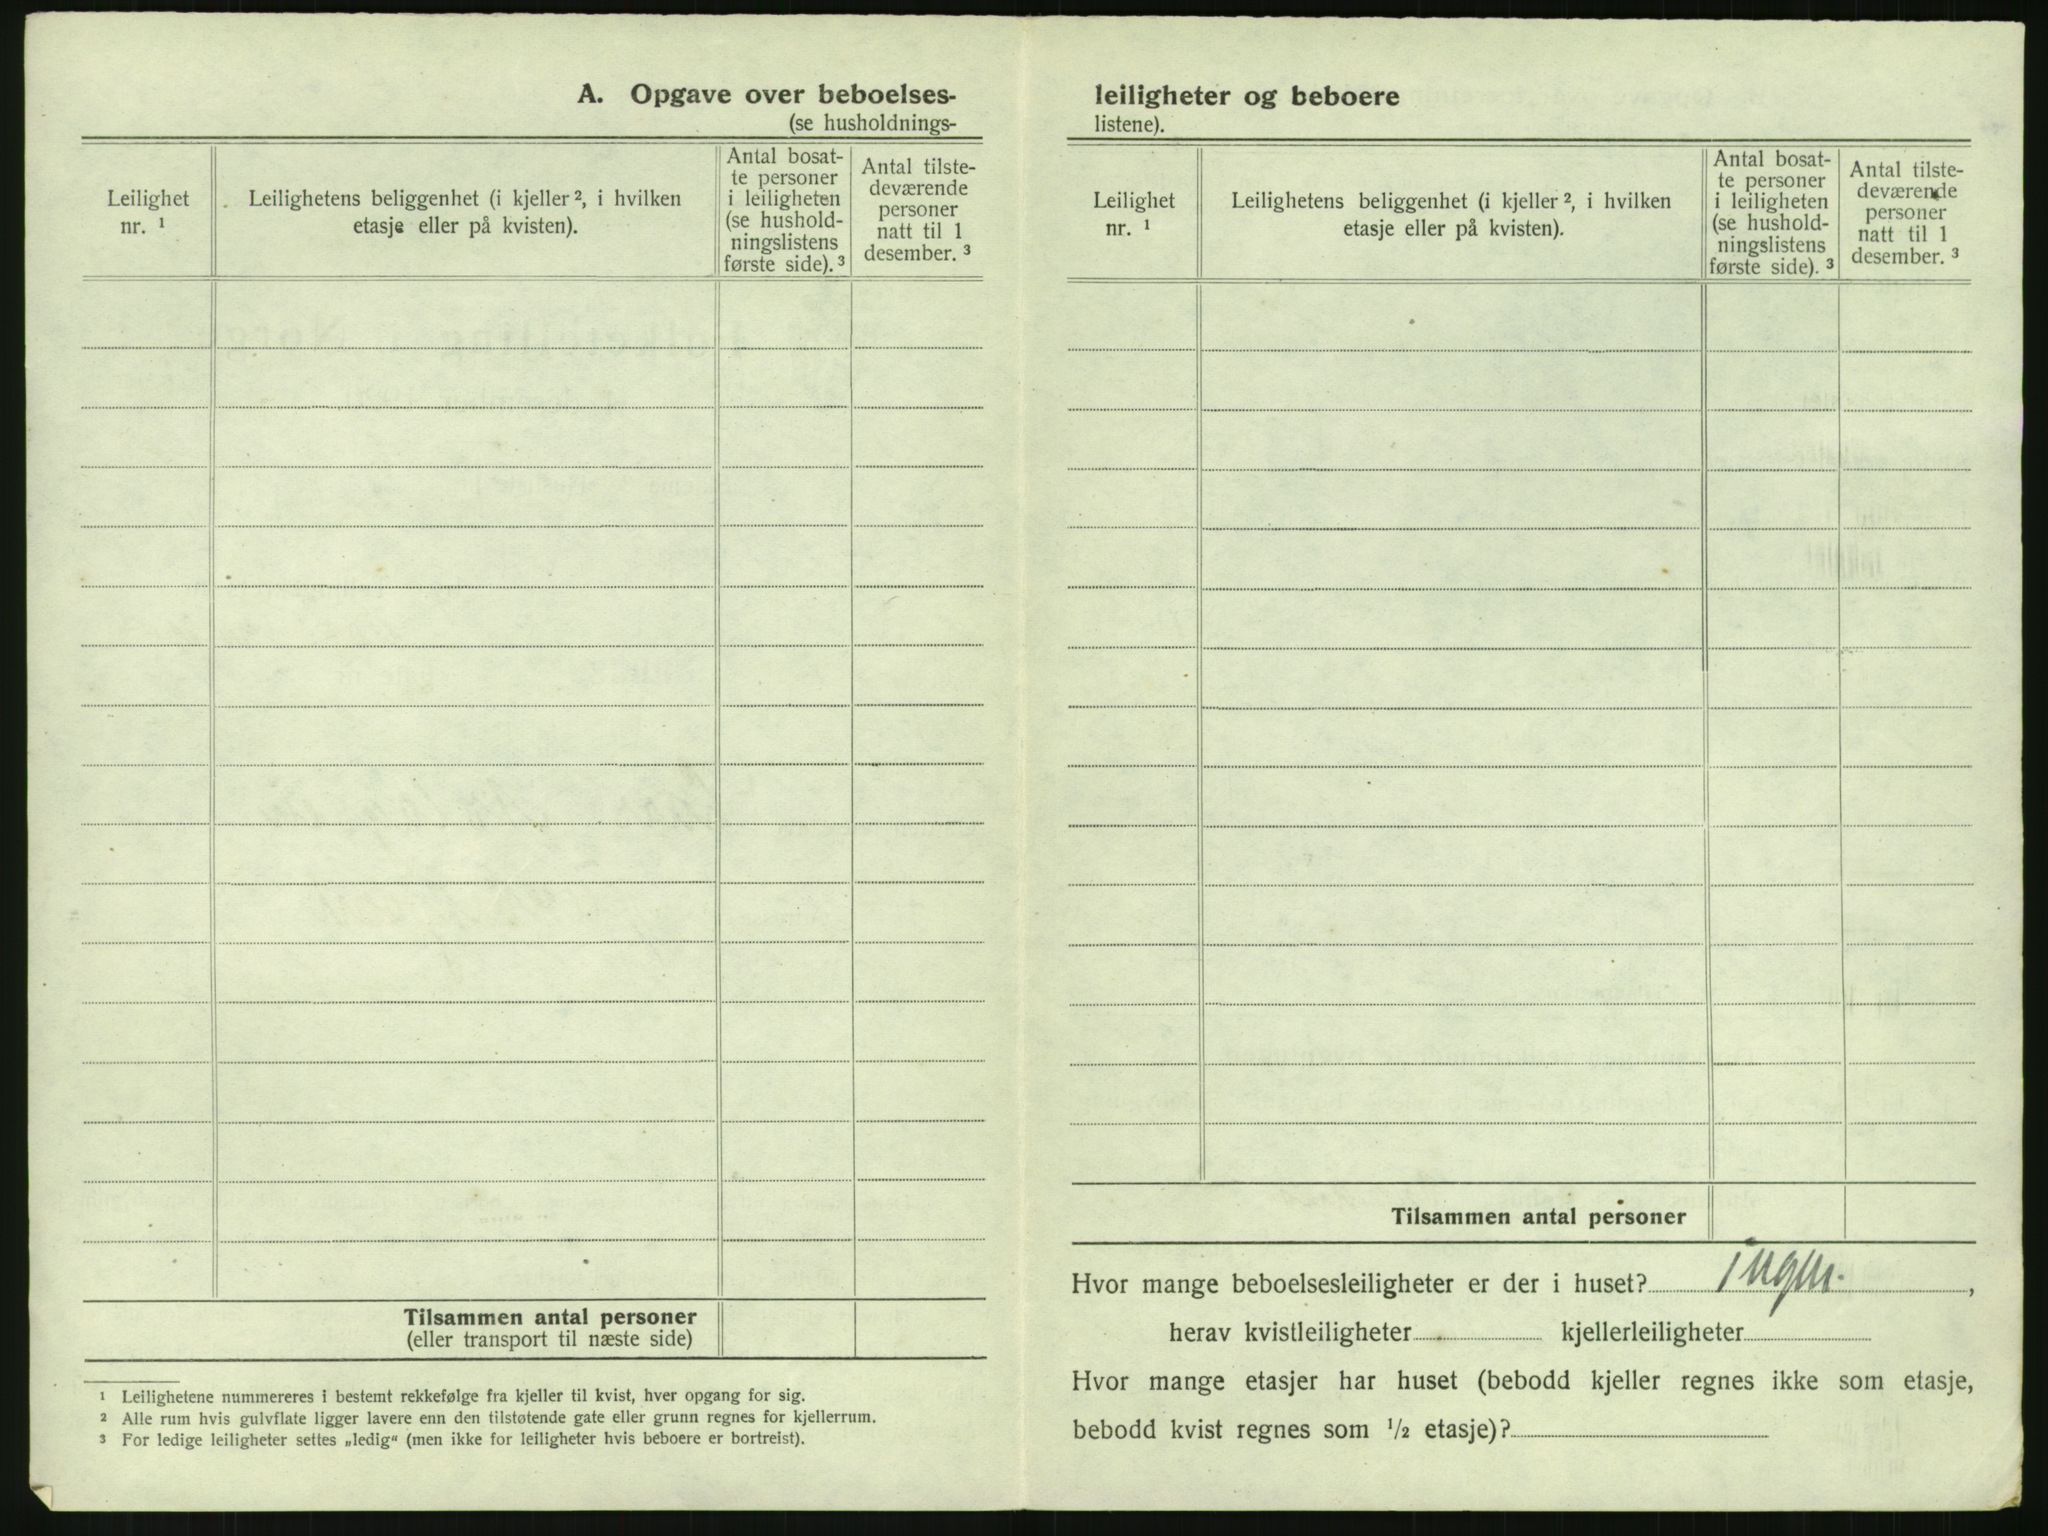 A. Opgave over beboelses-
(se husholdnings-
Leilighet
nr. ¹
Leilighetens beliggenhet (i kjeller ², i hvilken
etasje eller på kvisten).
Antal bosat-
te personer
i leiligheten
(se hushold-
ningslistens
første side). ³
Antal tilste-
deværende
personer
natt til 1
desember. ³
Tilsammen antal personer
(eller transport til næste side)
¹ Leilighetene nummereres i bestemt rekkefølge fra kjeller til kvist, hver opgang for sig.
² Alle rum hvis gulvflate ligger lavere enn den tilstøtende gate eller grunn regnes for kjellerrum.
³ For ledige leiligheter settes „ledig“ (men ikke for leiligheter hvis beboere er bortreist).
leiligheter og beboere
listene).
Leilighet
nr. ¹
Leilighetens beliggenhet (i kjeller ², i hvilken
etasje eller på kvisten).
Antal bosat-
te personer
i leiligheten
(se hushold-
ningslistens
første side). ³
Antal tilste-
deværende
personer
natt til 1
desember. ³
Tilsammen antal personer
Hvor mange beboelsesleiligheter er der i huset? ingen.,
herav kvistleiligheter kjellerleiligheter
Hvor mange etasjer har huset (bebodd kjeller regnes ikke som etasje,
bebodd kvist regnes som ½ etasje)?